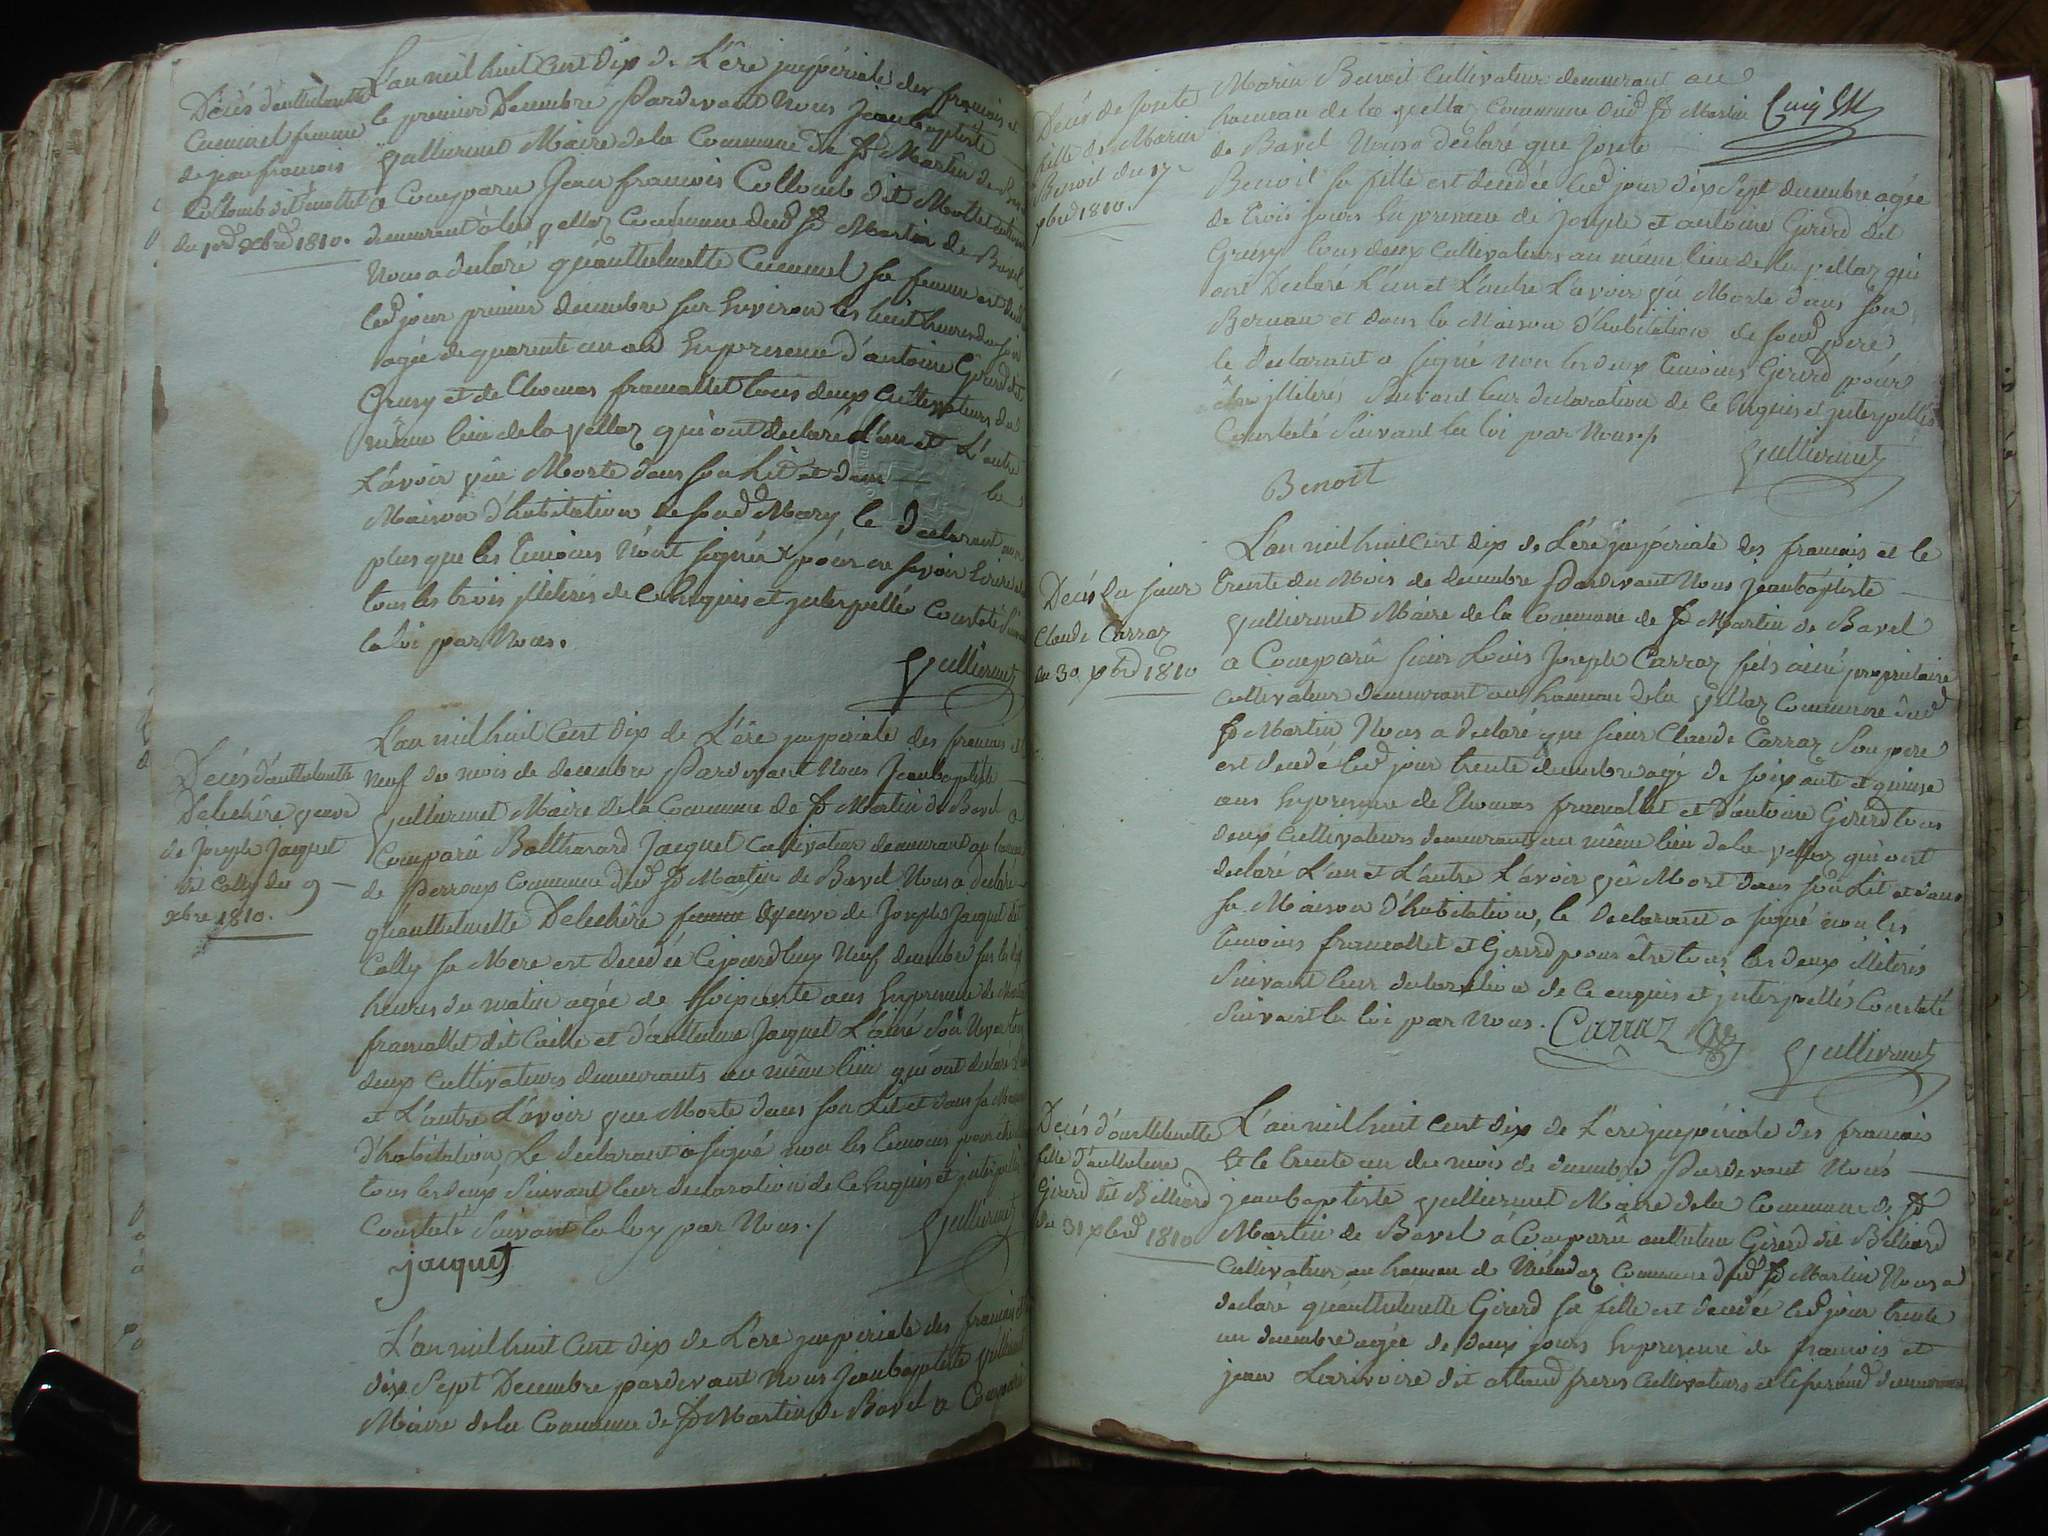 Décès d'anthelmette
Cummel femme
de jean francois
Collomb dit mollet
du 1er xbre 1810.
L'an mil huit Cent dix de L'ére jmpériale des francais et
le premier Decembre Pardevant Nous jeanbaptiste
Vulliermet Maire dela Commune de St Martin de
a Comparu Jean francois Collomb dit Mollet
demeurant à la Vellaz Commune dud St Martin de Bavel
Nous a declaré qu'anthelmette Cummel sa femme est
led jour premier decembre sur Environ les huit heures du soir
agée de quarente un an En presence d'antoine Girerd dit
Grusy et de Thomas framallet tous deux Cultivateurs du
même lieu de la Vellaz qui ont declaré L'un et L'autre
L'avoir vüe Morte dans son Lit et dans la
Maison d'habitation de sond Mary, le declarant non
plus que les Temoins N'ont signés pour ne savoir Ecrire
tous les trois jlleterés de Ce Enquis et jnterpellés Constaté
la loi par Nous.
Vulliermet
Decés d'anthelmette
Delechêre veuve
de Joseph Jacquet
dit Colly du 9
xbre 1810.
L'an mil huit Cent dix de L'ére jmperiale des francais et
Neuf du mois de decembre Pardevant Nous Jeanbaptiste
Vulliermet Maire dela Commune de St Martin de Bavel a
Comparu Balthazard Jacquet Cultivateur demeurant au hameau
de Perroux Commune dud St Martin de Bavel Nous a declaré
qu'anthelmette Delechêre femme Veuve de Joseph Jacquet dit
Colly sa Mere est decedée Cejourdhuy Neuf decembre sur les
heures du matin agée de soixente ans En presence de
framallet dit Caille et d'anthelme Jacquet L'ainé son Neveu tous
deux Cultivateurs demeurants au même lieu qui ont declaré
et L'autre L'avoir vue Morte dans son Lit et dans sa
d'habitation, Le declarant a signé non les temoins pour
tous les deux suivant leur declaration de Ce Enquis et jnterpellés
Constaté Suivant la loy par Nous./
Vulliermet
jacquet
L'an mil huit Cent dix de L'ére jmperiale des francais et
dix Sept Decembre pardevant Nous Jeanbaptiste Vulliermet
Maire dela Commune de St Martin de Bavel a Comparu
Decés de Josete
fille de Marin
Benoit du 17
xbre 1810.
Marin Benoit Cultivateur demeurant au
hameau de la Vellaz Commune dud St Martin
de Bavel Nous a declaré que Josete
Benoit sa fille est decedée led jour dix Sept decembre agée
de trois jours En presence de joseph et antoine Girerd dit
Grusy tous deux Cultivateurs au même lieu de la Vellaz qui
ont Declaré L'un et L'autre L'avoir vü Morte dans son
Berceau et dans la Maison d'habitation de sond pere
le declarant a signé non les deux temoins Girerd pour
être jlleterés Suivant leur declaration de Ce Enquis et jnterpellés
Constaté Suivant la loi par Nous./
Vulliermet
Benoit
Decés du sieur
Claude Carraz
du 30 xbre 1810
L'an mil huit Cent dix de L'ére jmpériale des francais et le
Trente du Mois de decembre Pardevant Nous jeanbaptiste
Vulliermet Maire de la Commune de St Martin de Bavel
a Comparû sieur Louis Joseph Carraz fils ainé proprietaire
Cultivateur demeurant au hameau dela Vellaz Commune dud
St Martin Nous a declaré que sieur Claude Carraz Son pere
est decedé led jour trente decembre agé de soixante et quinze
ans En presence de Thomas framallet et d'antoine Girerd tous
deux Cultivateurs demeurants au même lieu dela Vellaz qui ont
declaré L'un et L'autre L'avoir vû Mort dans son Lit et dans
sa Maison d'habitation, le declarant a signé non les
temoins framallet et Girerd pour être tous les deux jlleterés
Suivant leur declaration de Ce enquis et jnterpellés Constaté
Suivant la loi par Nous. Carraz
Vulliermet
Decés d'anthelmette
fille d'anthelme
Girerd dit Billiard
du 31 xbre 1810
L'an mil huit Cent dix de L'ére jmpériale des francais
Et le trente un du mois de decembre Pardevant Nous
jeanbaptiste Vulliermet Maire dela Commune de St
Martin de Bavel à Comparû anthelme Girerd dit Billiard
Cultivateur au hameau de Commune dud St Martin Nous a
declaré qu'anthelmette Girerd sa fille est decedée led jour trente
un decembre agée de deux jours En presence de francois et
jean Larivoire dit artaud freres Cultivateurs